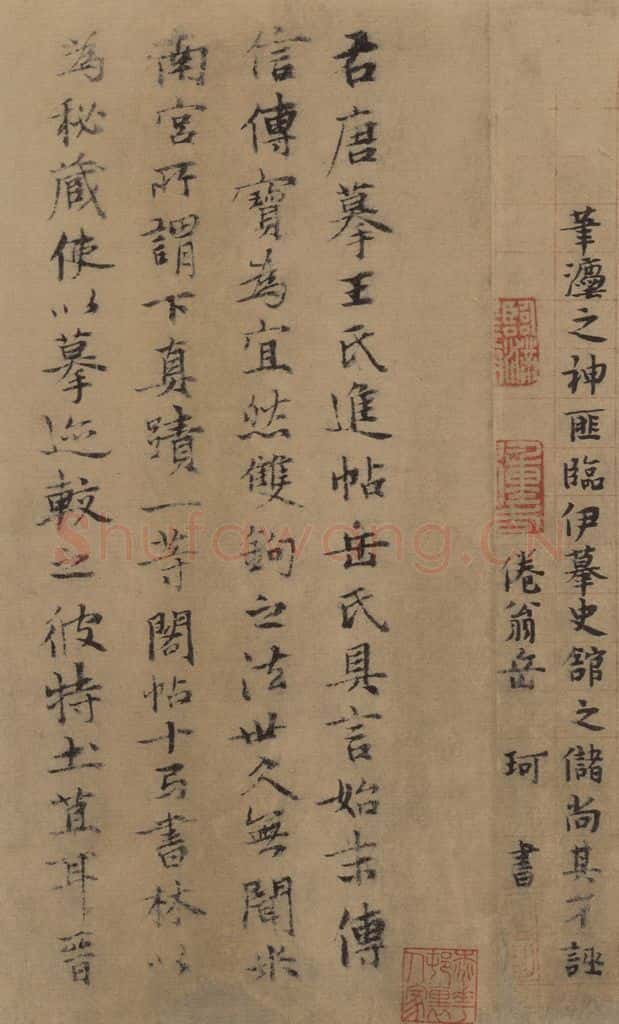 筆瀍之神匪臨伊摹史舘之儲尚其不誣
倦翁岳珂書
右唐摹王氏進帖岳氏具言始末傳
信傳寶為宜然雙鉤之法世久無聞米
南宮所謂下真蹟一等閣帖十弓書林以
為秘藏使以摹迹較之彼特土苴耳晉
Shufawang.CN